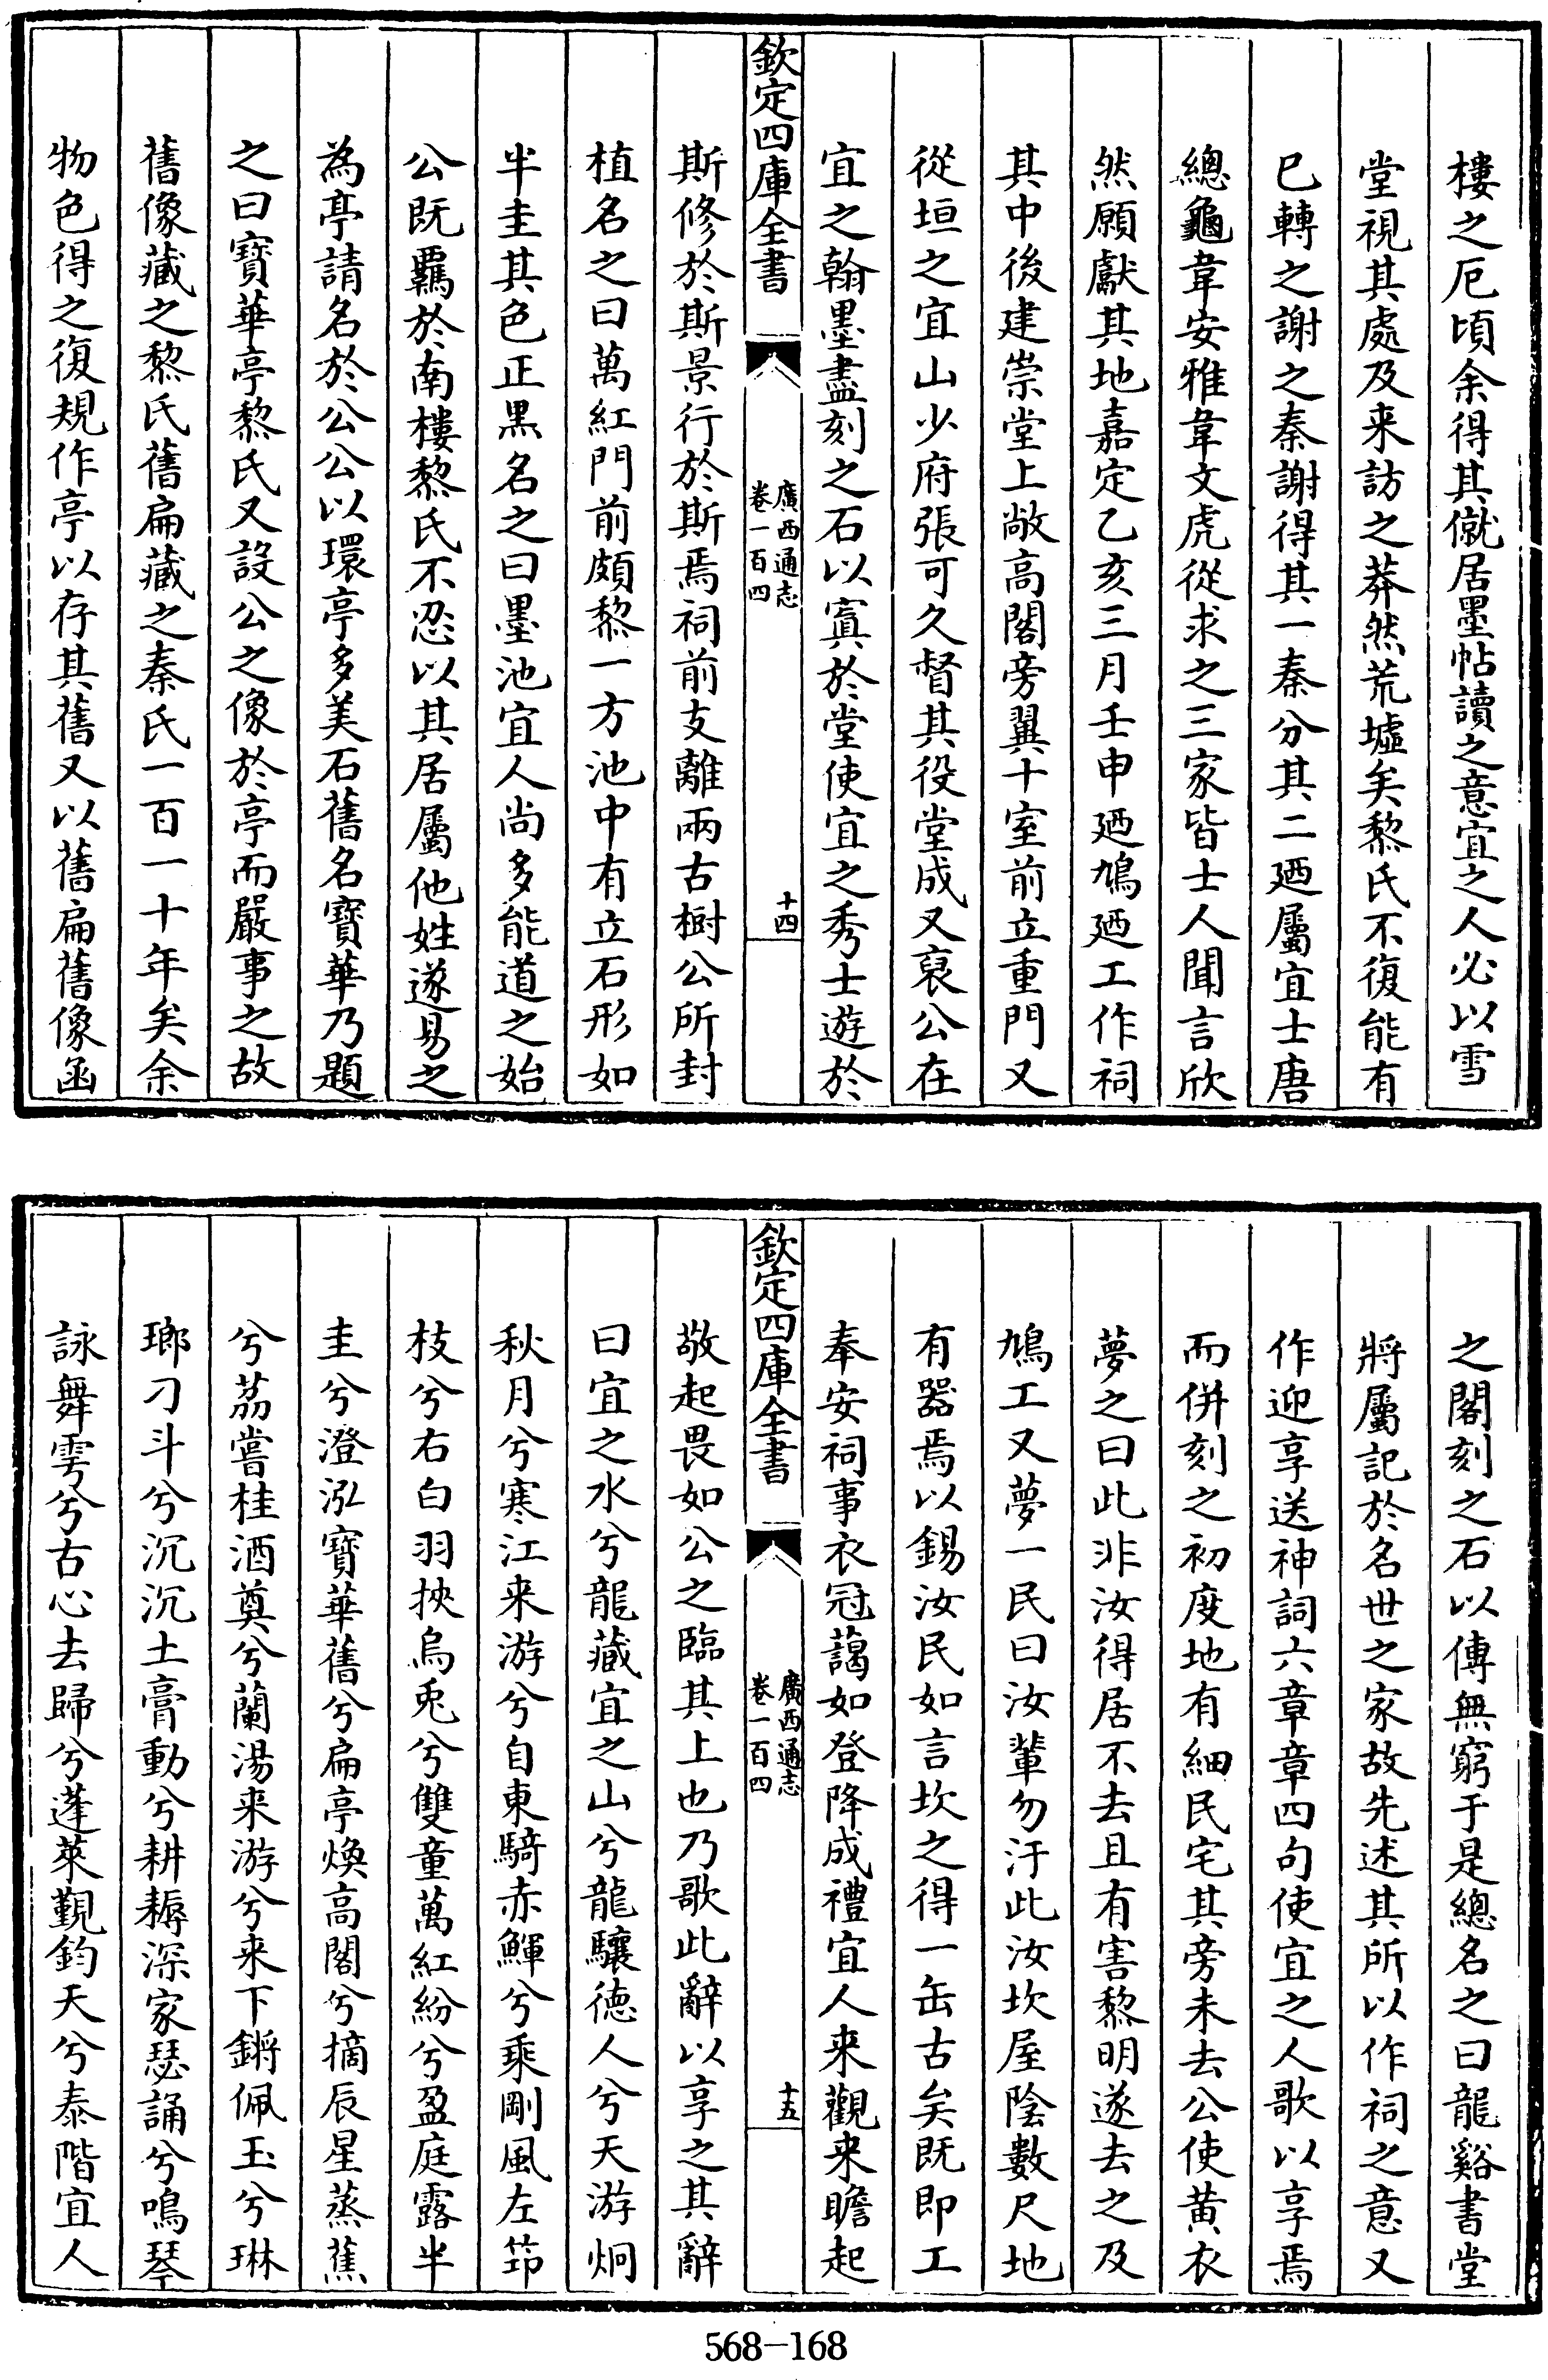 樓之厄頃余得其僦居墨帖讀之意宜之人必以雪
堂視其處及来訪之莽然荒墟矣黎氏不復能有
已轉之謝之秦謝得其一秦分其二廼屬宜士唐
總龜韋安雅韋文虎從求之三家皆士人聞言欣
然願獻其地嘉定乙亥三月壬申廼鳩廼工作祠
其中後建崇堂上敞高閣旁翼十室前立重門又
從垣之宜山少府張可久督其役堂成又裒公在
宜之翰墨盡刻之石以寘於堂使宜之秀士遊於
欽定四庫全書
廣西通志
卷一百四
十四
斯修於斯景行於斯焉祠前支離兩古樹公所封
植名之曰萬紅門前頗黎一方池中有立石形如
半圭其色正黑名之曰墨池宜人尚多能道之始
公既羈於南樓黎氏不忍以其居屬他姓遂易之
為亭請名於公公以環亭多美石舊名寶華乃題
之曰寶華亭黎氏又設公之像於亭而嚴事之故
舊像藏之黎氏舊扁藏之秦氏一百一十年矣余
物色得之復規作亭以存其舊又以舊扁舊像函
之閣刻之石以傳無窮于是總名之曰龍谿書堂
將屬記於名世之家故先述其所以作祠之意又
作迎享送神詞六章章四句使宜之人歌以享焉
而併刻之初度地有細民宅其旁未去公使黃衣
夢之曰此非汝得居不去且有害黎明遂去之及
鳩工又夢一民曰汝輩勿汙此汝坎屋陰數尺地
有器焉以錫汝民如言坎之得一缶古矣既即工
奉安祠事衣冠藹如登降成禮宜人来觀来瞻起
欽定四庫全書
廣西通志
卷一百四
十五
敬起畏如公之臨其上也乃歌此辭以享之其辭
曰宜之水兮龍藏宜之山兮龍驤德人兮天游炯
秋月兮寒江来游兮自東騎赤鯶兮乘剛風左笻
枝兮右白羽挾烏兎兮雙童萬紅紛兮盈庭露半
圭兮澄泓寶華舊兮扁亭煥高閣兮摘辰星蒸蕉
兮荔嘗桂酒奠兮蘭湯来游兮来下鏘佩玉兮琳
瑯刁斗兮沉沉土膏動兮耕耨深家瑟誦兮鳴琴
詠舞雩兮古心去歸兮蓬萊覲鈞天兮泰階宜人
568-168